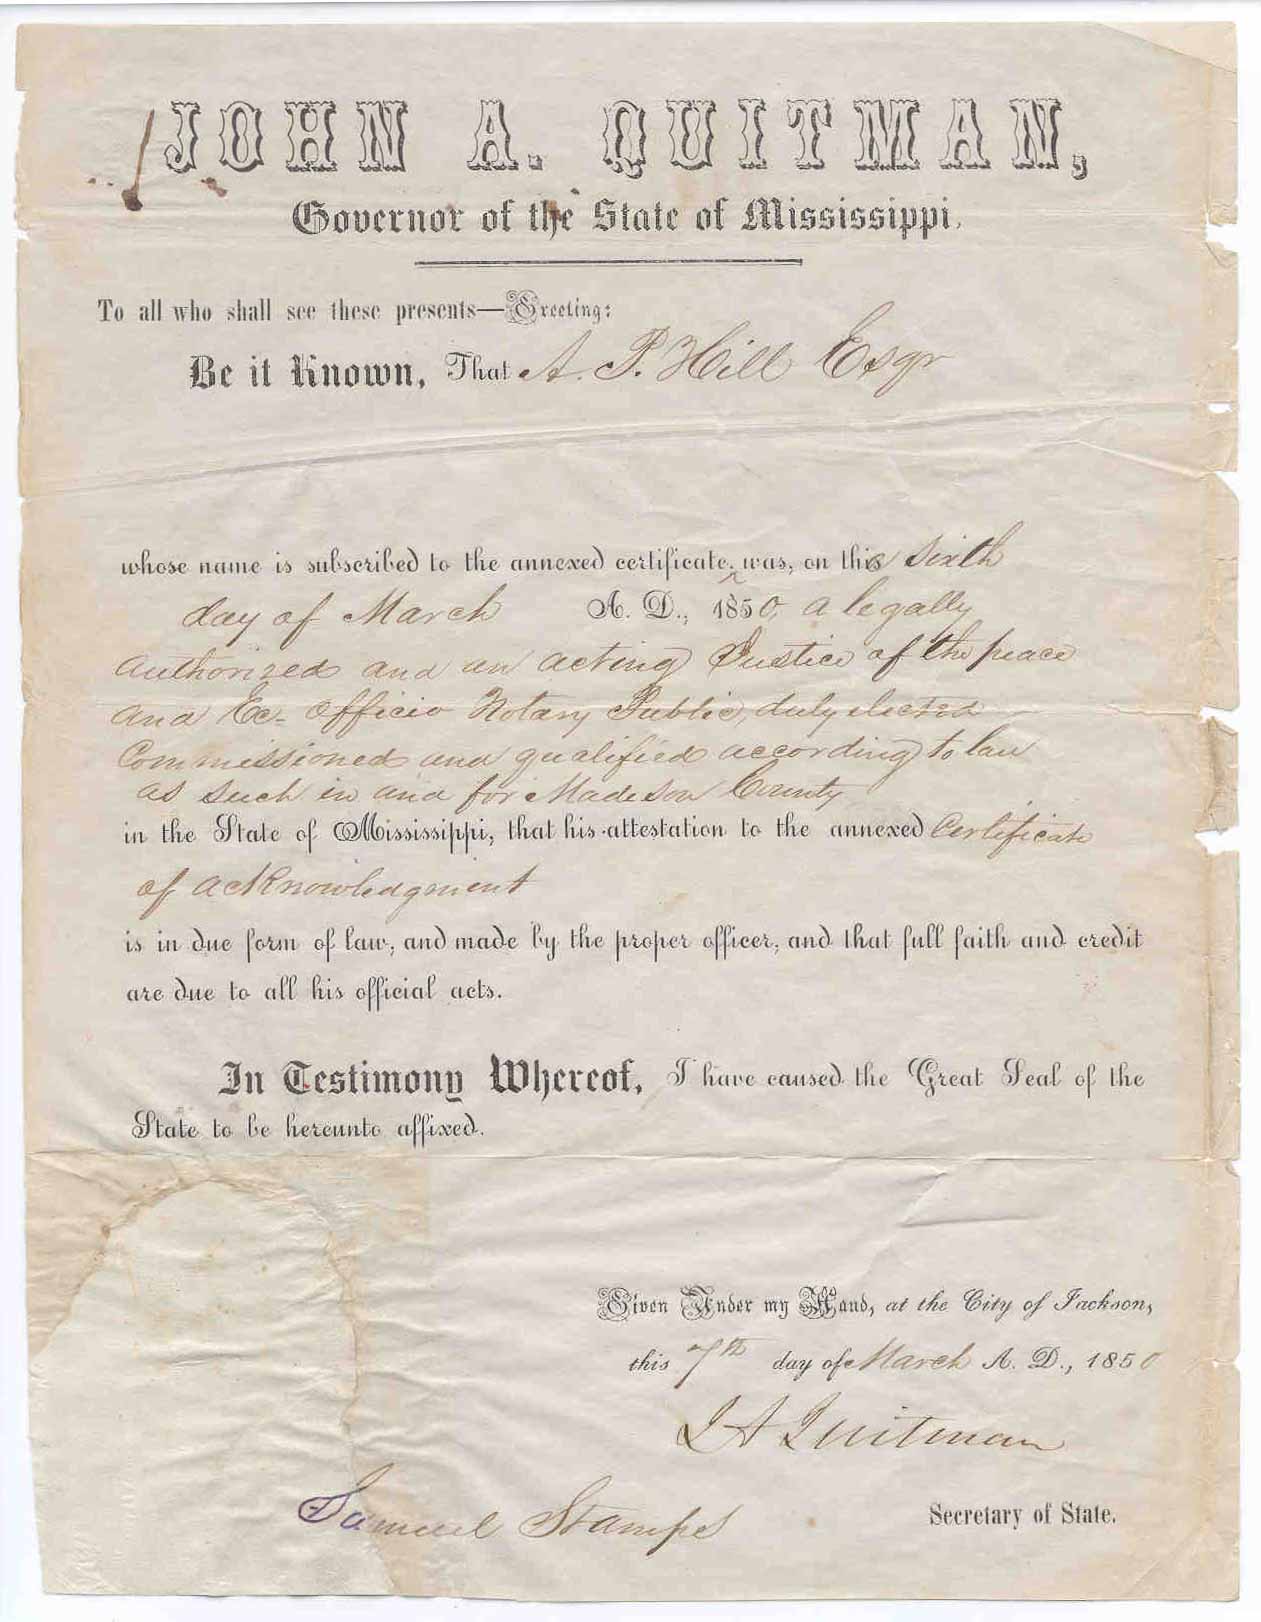 JOHN A. QUITMAN,
Governor of the State of Mississippi.
To all who shall see these presents—Greeting:
Be it Known, That A. P. Hill Esqr
whose name is subscribed to the annexed certificate, was, on this sixth
day of March A. D., 1850, a legally
authorized and an acting Justice of the peace
and Ex- Officio Notary Public, duly elected
Commissioned and qualified according to law
as such in and for Madison County
in the State of Mississippi, that his attestation to the annexed Certificate
of acknowledgment
is in due form of law, and made by the proper officer, and that full faith and credit
are due to all his official acts.
In Testimony Whereof, I have caused the Great Seal of the
State to be hereunto affixed.
Given Under my Hand, at the City of Jackson,
this 7th day of March A. D., 1850
J A Quitman
Samuel Stamps Secretary of State.